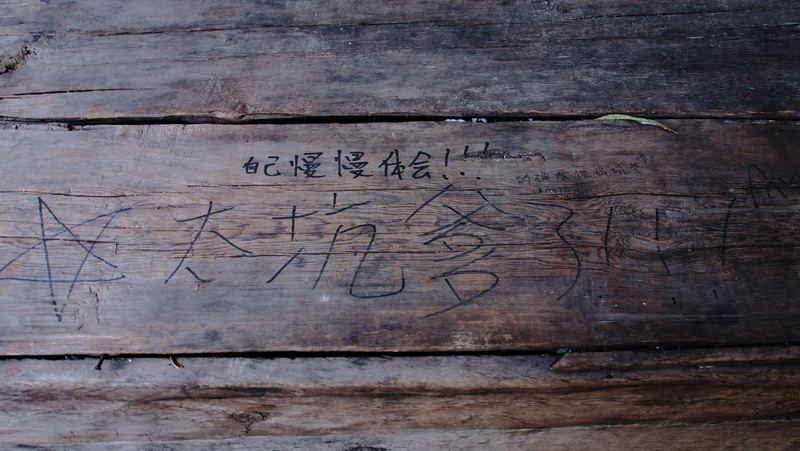 自己慢慢体会!!!
太坑爹了!!!!